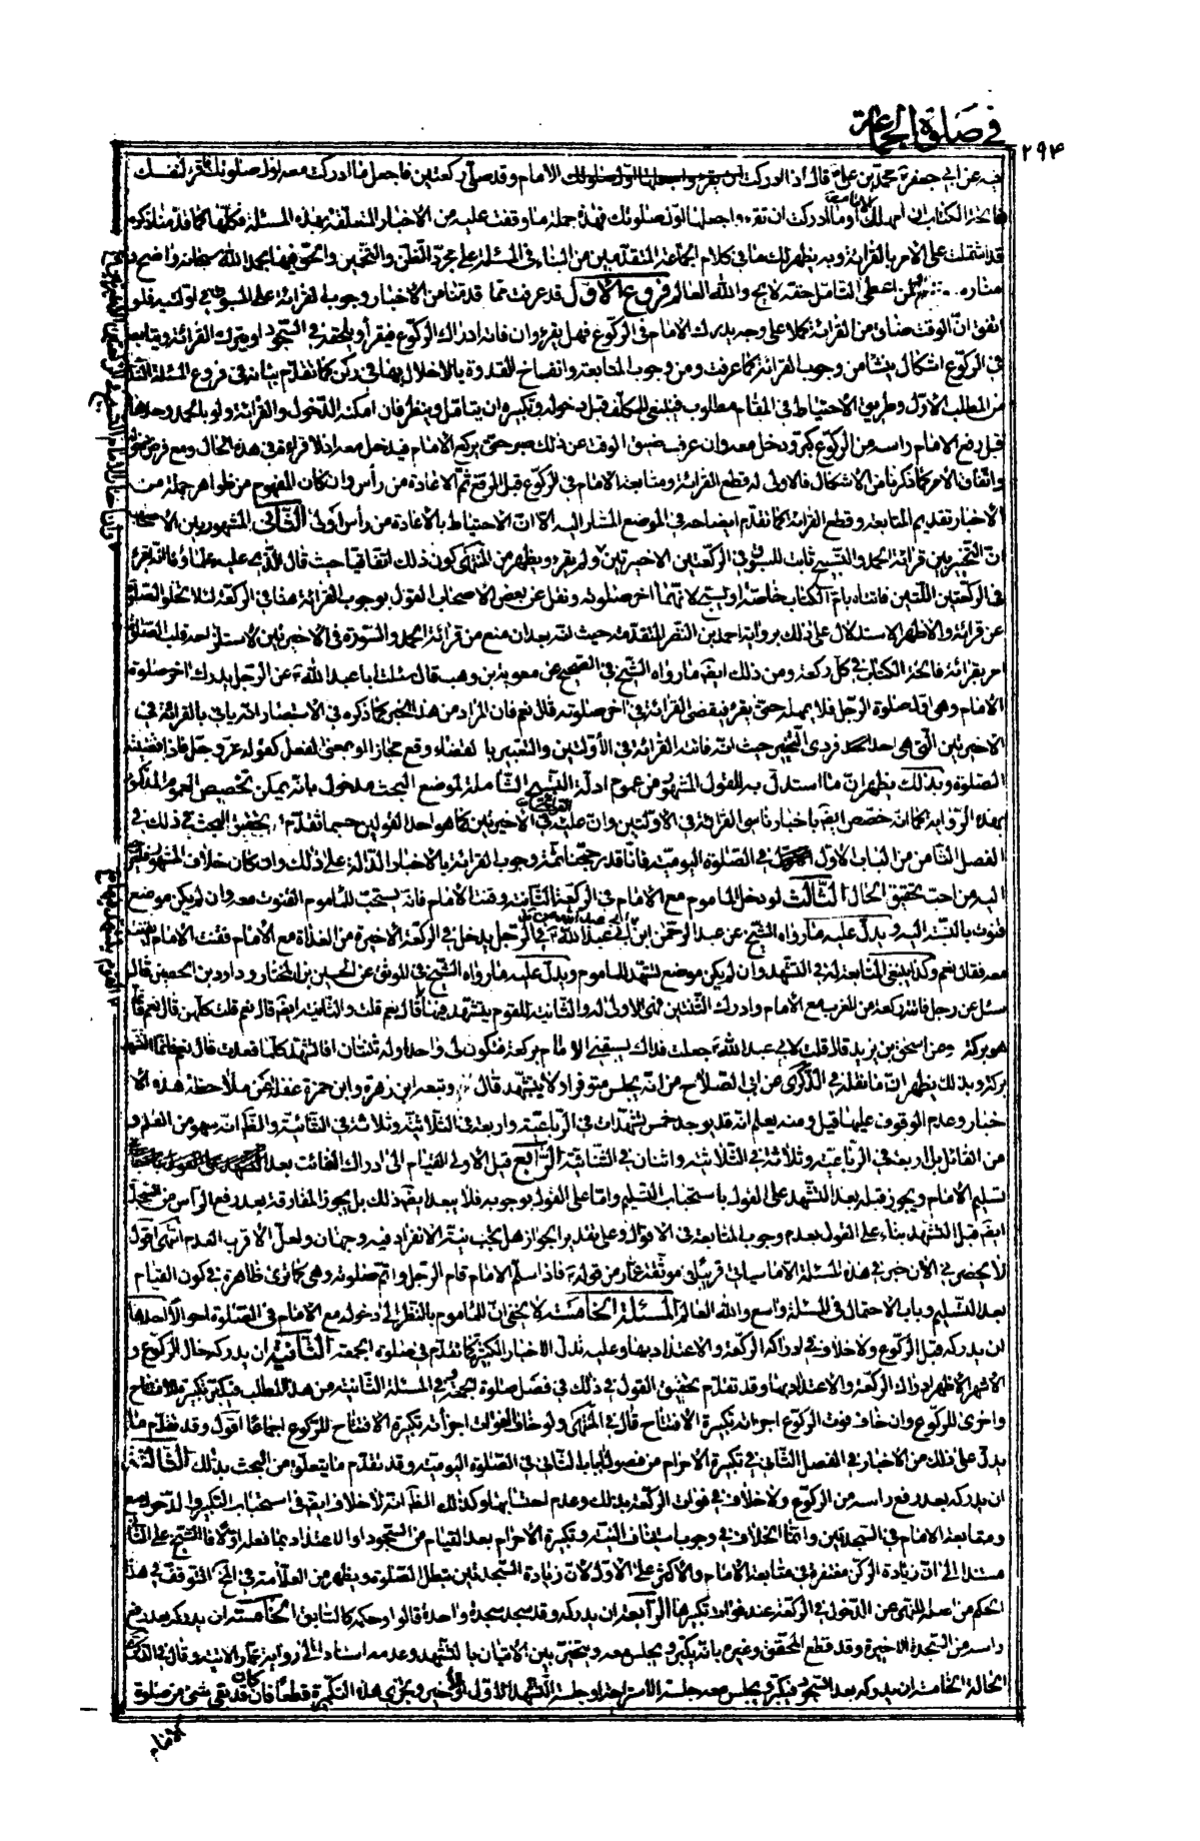 في صلوة الجماعة
٢٩٤
فيه عن ابي جعفر محمد بن علي قال اذا ادركت الامام وقد صلى ركعتين فاجعل ما ادركت معه اول صلوتك فاقرء لنفسك
فاتحة الكتاب ان امهلك الامام وما ادركت ان تقرء واجعلها اول صلوتك فهذه جملة ما وقفت عليه من الاخبار المتعلقة بهذه المسئلة وكلها كما قدمنا ذكره
قد اشتملت على الامر بالقرائة وبه يظهر لك ما في كلام الجماعة المتقدمين من البناء في المسئلة على مجرد الظن والتخمين والحق فيها بحمد الله سبحانه واضح
مناره لمن اعطى التامل حقه لايح والله العالم فروع الاول قد عرفت مما قدمنا من الاخبار وجوب القرائة على المسبوق في اولتيه فلو
اتفق ان الوقت ضاق من القرائة كملا على وجه يدرك الامام في الركوع فهل يقرء وان فاته ادراك الركوع فيقرأ ويلحقه في السجود او يترك القرائة ويتابعه
في الركوع اشكال ينشا من وجوب القرائة كما عرفت ومن وجوب المتابعة وانفساخ القدوة بالاخلال بها في ركن كما تقدم بيانه في فروع المسئلة الثانية
من المطلب الاول وطريق الاحتياط في المقام مطلوب فينبغي للمكلف قبل دخوله وتكبيره ان يتامل وينظر فان امكنه الدخول والقرائة ولو بالحمد وحدها
قبل رفع الامام راسه من الركوع كبر ودخل معه وان عرف ضيق الوقت عن ذلك صبر حتى يركع الامام فيدخل معه اذ لا قرائة في هذه الحال ومع فرض دخوله
واتفاق الامر كما ذكرنا من الاشكال فالاولى له قطع القرائة ومتابعة الامام في الركوع قبل الرفع ثم الاعادة من رأس وان كان المفهوم من ظواهر جملة من
الاخبار تقديم المتابعة وقطع القرائة كما تقدم ايضاحه في الموضع المشار اليه الا ان الاحتياط بالاعادة من رأس اولى الثاني المشهور بين الاصحاب
ان التخيير بين قرائة الحمد والتسبيح ثابت للمسبوق في الركعتين الاخيرتين ولو لم يقرء ويظهر من المنتهى كون ذلك اتفاقيا حيث قال الذي عليه علماؤنا انه يقرء
في الركعتين اللتين فاتتاه بام الكتاب خاصة او يسبح لانهما اخر صلوته ونقل عن بعض الاصحاب القول بوجوب القرائة هنا في الركعة لئلا تخلو الصلوة
عن قرائة والاظهر الاستدلال على ذلك برواية احمد بن النضر المتقدمة حيث انه بعد ان منع من قرائة الحمد والسورة في الاخيرتين لاستلزامه قلب الصلوة
امر بقرائة فاتحة الكتاب في كل ركعة ومن ذلك ايضا ما رواه الشيخ في الصحيح عن معوية بن وهب قال سئلت ابا عبد الله عن الرجل يدرك اخر صلوة
الامام وهي اول صلوة الرجل فلا يمهله حتى يقرء فيقضي القرائة في اخر صلوته قال نعم فان المراد من هذا الخبر كما ذكره في الاستبصار انه ياتي بالقرائة في
الاخيرتين التي هي احد فردي التخيير حيث انه فاتته القرائة في الاولتين والتعبير بالقضاء وقع مجازا او بمعنى الفعل كقوله عز وجل فاذا قضيت
الصلوة وبذلك يظهر ان ما استدل به للقول المشهور من عموم ادلة التسبيح الشاملة لموضع البحث مدخول بانه يمكن تخصيص العموم المذكور
بهذه الرواية كما انه خصص ايضا باخبار ناسي القرائة في الاولتين وان عليه القرائة في الاخيرتين كما هو احد القولين حسبما تقدم تحقيق البحث في ذلك في
الفصل الثامن من الباب الاول في الصلوة اليومية فانا قد رجحنا ثمة وجوب القرائة بالاخبار الدالة على ذلك وان كان خلاف المشهور
اليه من احب تحقيق الحال الثالث لو دخل الماموم مع الامام في الركعة الثانية وقنت الامام فانه يستحب للماموم القنوت معه وان لم يكن موضع
قنوت بالنسبة اليه ويدل عليه ما رواه الشيخ عن عبد الرحمن ابن ابي عبد الله عن ابي عبد الله في الرجل يدخل في الركعة الاخيرة من الغداة مع الامام فقنت الامام ايقنت
معه فقال نعم وكذا ينبغي المتابعة له في التشهد وان لم يكن موضع تشهد للماموم ويدل عليه ما رواه الشيخ في الموثق عن الحسين بن المختار وداود بن الحصين قال
سئل عن رجل فاتته ركعة من المغرب مع الامام وادرك الثنتين فهي الاولى له والثانية للقوم يتشهد فيها قال نعم قلت والثانية ايضا قال نعم قلت كلهن قال نعم فانما
هو بركة وعن اسحق بن يزيد قال قلت لابي عبد الله جعلت فداك يسبقني الامام بركعة فتكون لي واحدة وله ثنتان افاتشهد كلما قعدت قال نعم فانما التشهد
بركة وبذلك يظهر ان ما نقله في الذكرى عن ابي الصلاح من انه يجلس مستوفزا ولا يتشهد قال وتبعه ابن زهرة وابن حمزة غفلة عن ملاحظة هذه الا
خبار وعدم الوقوف عليها قيل ومنه يعلم انه قد يوجد خمس تشهدات في الرباعية واربعة في الثلاثية وثلاثة في الثنائية والظاهر انه سهو من القلم او
من القائل بل اربعة في الرباعية وثلاثة في الثلاثية واثنان في الثنائية الرابع قيل الاولى القيام الى ادراك الفائت بعد
تسليم الامام ويجوز قبله بعد التشهد على القول باستحباب التسليم واما على القول بوجوبه فلا يبعد ايضا ذلك بل يجوز المفارقة بعد رفع الرأس من السجدة
ايضا قبل التشهد بناء على القول بعدم وجوب المتابعة في الاقوال وعلى تقدير الجواز هل يجب نية الانفراد فيه وجهان ولعل الاقرب العدم انتهى اقول
لا يحضرني الان خبر في هذه المسئلة الا ما سياتي قريبا في موثقة عمار من قوله فاذا سلم الامام قام الرجل واتم صلوته وهي كما ترى ظاهرة في كون القيام
بعد التسليم وباب الاحتمال في المسئلة واسع والله العالم المسئلة الخامسة لا يخفى ان للماموم بالنظر الى دخوله مع الامام في الصلوة احوالا احدها
ان يدركه قبل الركوع ولا خلاف في ادراكه الركعة والاعتداد بها وعليه تدل الاخبار المتكثرة كما تقدم في صلوة الجمعة الثانية ان يدركه حال الركوع و
الاشهر الاظهر ادراك الركعة والاعتداد بها وقد تقدم تحقيق القول في ذلك في فصل صلوة الجمعة وفي المسئلة الثانية من هذا المطلب فيكبر تكبيرة للافتتاح
واخرى للركوع وان خاف فوت الركوع اجزاته تكبيرة الافتتاح قال في المنتهى ولو خاف الفوات اجزأته تكبيرة الافتتاح للركوع اجماعا اقول وقد تقدم ما
يدل على ذلك من الاخبار في الفصل الثاني في تكبيرة الاحرام من فصول الباب الثاني في الصلوة اليومية وقد تقدم ما يتعلق من البحث بذلك الثالثة
ان يدركه بعد رفع راسه من الركوع ولا خلاف في فوات الركعة بذلك وعدم احتسابها وكذلك الظاهر انه لا خلاف ايضا في استحباب التكبير والدخول معه
ومتابعة الامام في السجدتين وانما الخلاف في وجوب استيناف النية وتكبيرة الاحرام بعد القيام من السجود او الاعتداد بما فعله اولا فالشيخ على الثاني
مستندا الى ان زيادة الركن مغتفرة في متابعة الامام والاكثر على الاول لان زيادة السجدتين تبطل الصلوة ويظهر من العلامة في المخ التوقف في هذا
الحكم من اصله للنهي عن الدخول في الركعة عند فوات تكبيرها الرابعة ان يدركه وقد سجد سجدة واحدة قالوا وحكمه كالسابق الخامسة ان يدركه بعد رفع
راسه من السجدة الاخيرة وقد قطع المحقق وغيره بانه يكبر ويجلس معه ويتخير بين الاتيان بالتشهد وعدمه استنادا الى رواية عمار الاتية وقال في التذكرة
الحالة الخامسة ان يدركه بعد السجود فيكبر ويجلس معه جلسة الاستراحة او جلسة التشهد الاول او الاخير ويجزي هذه التكبيرة قطعا فان كان قد بقي شيء من صلوة
الامام